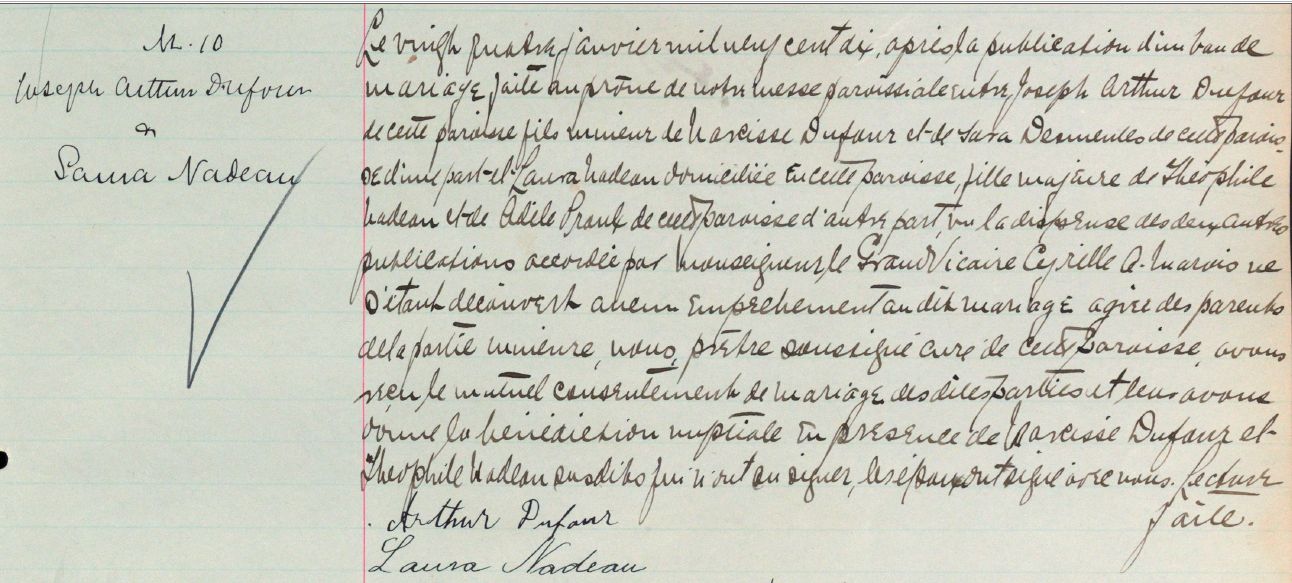 M. 10
Joseph Arthur Dufour
&
Laura Nadeau
Le vingt quatre janvier mil neuf cent dix, après la publication d'un ban de
mariage faite au prône de notre messe paroissiale entre Joseph Arthur Dufour
de cette parroisse fils mineur de Narcisse Dufour et de Sara Desmeules de cette parois-
se d'une part et Laura Nadeau domiciliée en cette paroisse, fille majeure de Théophile
Nadeau et de Adèle Proulx de cette paroisse d'autre part, vu la dispense des deux autres
publications accordée par Monseigneur le Grand Vicaire Cyrille A. Marois ne
s'étant découvert aucun empêchement au dit mariage agree des parents
de la partie mineure, nous, prêtre soussigné curé de cette paroisse, avons
reçu le mutuel consentement de mariage des dites parties et leur avons
donné la bénédiction nuptiale en présence de Narcisse Dufour et
Théophile Nadeau susdits qui n'ont su signer, les époux ont signé avec nous. Lecture
faite.
Arthur Dufour
Laura Nadeau